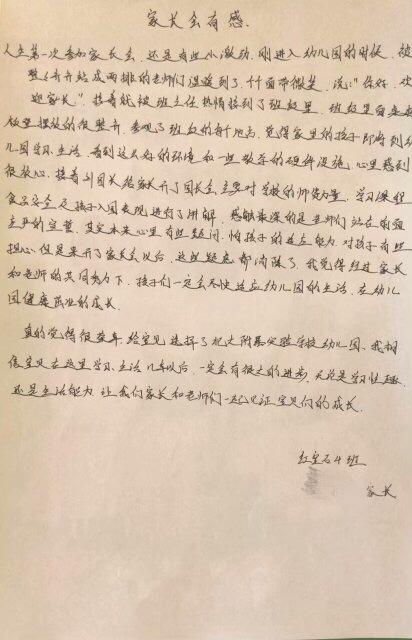 家长会有感.
人生第一次参加家长会,还是有些小激动,刚进入幼儿园的时候,被
整齐站成两排的老师们温暖到了,个个面带微笑,说:"你好,欢
迎家长",接着就被班主任热情接到了班级里,班级里
摆放的很整齐,参观了班级的每个地方,觉得家里的孩子即将到幼
儿园学习、生活,看到这么好的环境和一些教学的硬件设施,心里感到
很放心.接着到园长给家长开了园长会,主要对学校的师资力量,学习课程
食品安全及孩子入园表现,进行了讲解,感触最深的是老师们站在
主席的宣誓,其实本来心里有些疑问,怕孩子的适应能力,对孩子有些
担心,但是来开了家长会以后,这些疑虑都消除了,我觉得经过家长
和老师的共同努力下,孩子们一定会尽快适应幼儿园的生活,在幼儿
园健康茁壮的成长.
真的觉得很荣幸,给宝贝选择了北大附属实验学校幼儿园,我相
信宝贝在这里学习、生活几年以后,一定会有很大的进步,无论是学习性趣
还是生活能力,让我们家长和老师们一起见证宝贝们的成长.
红宝石4班
家长